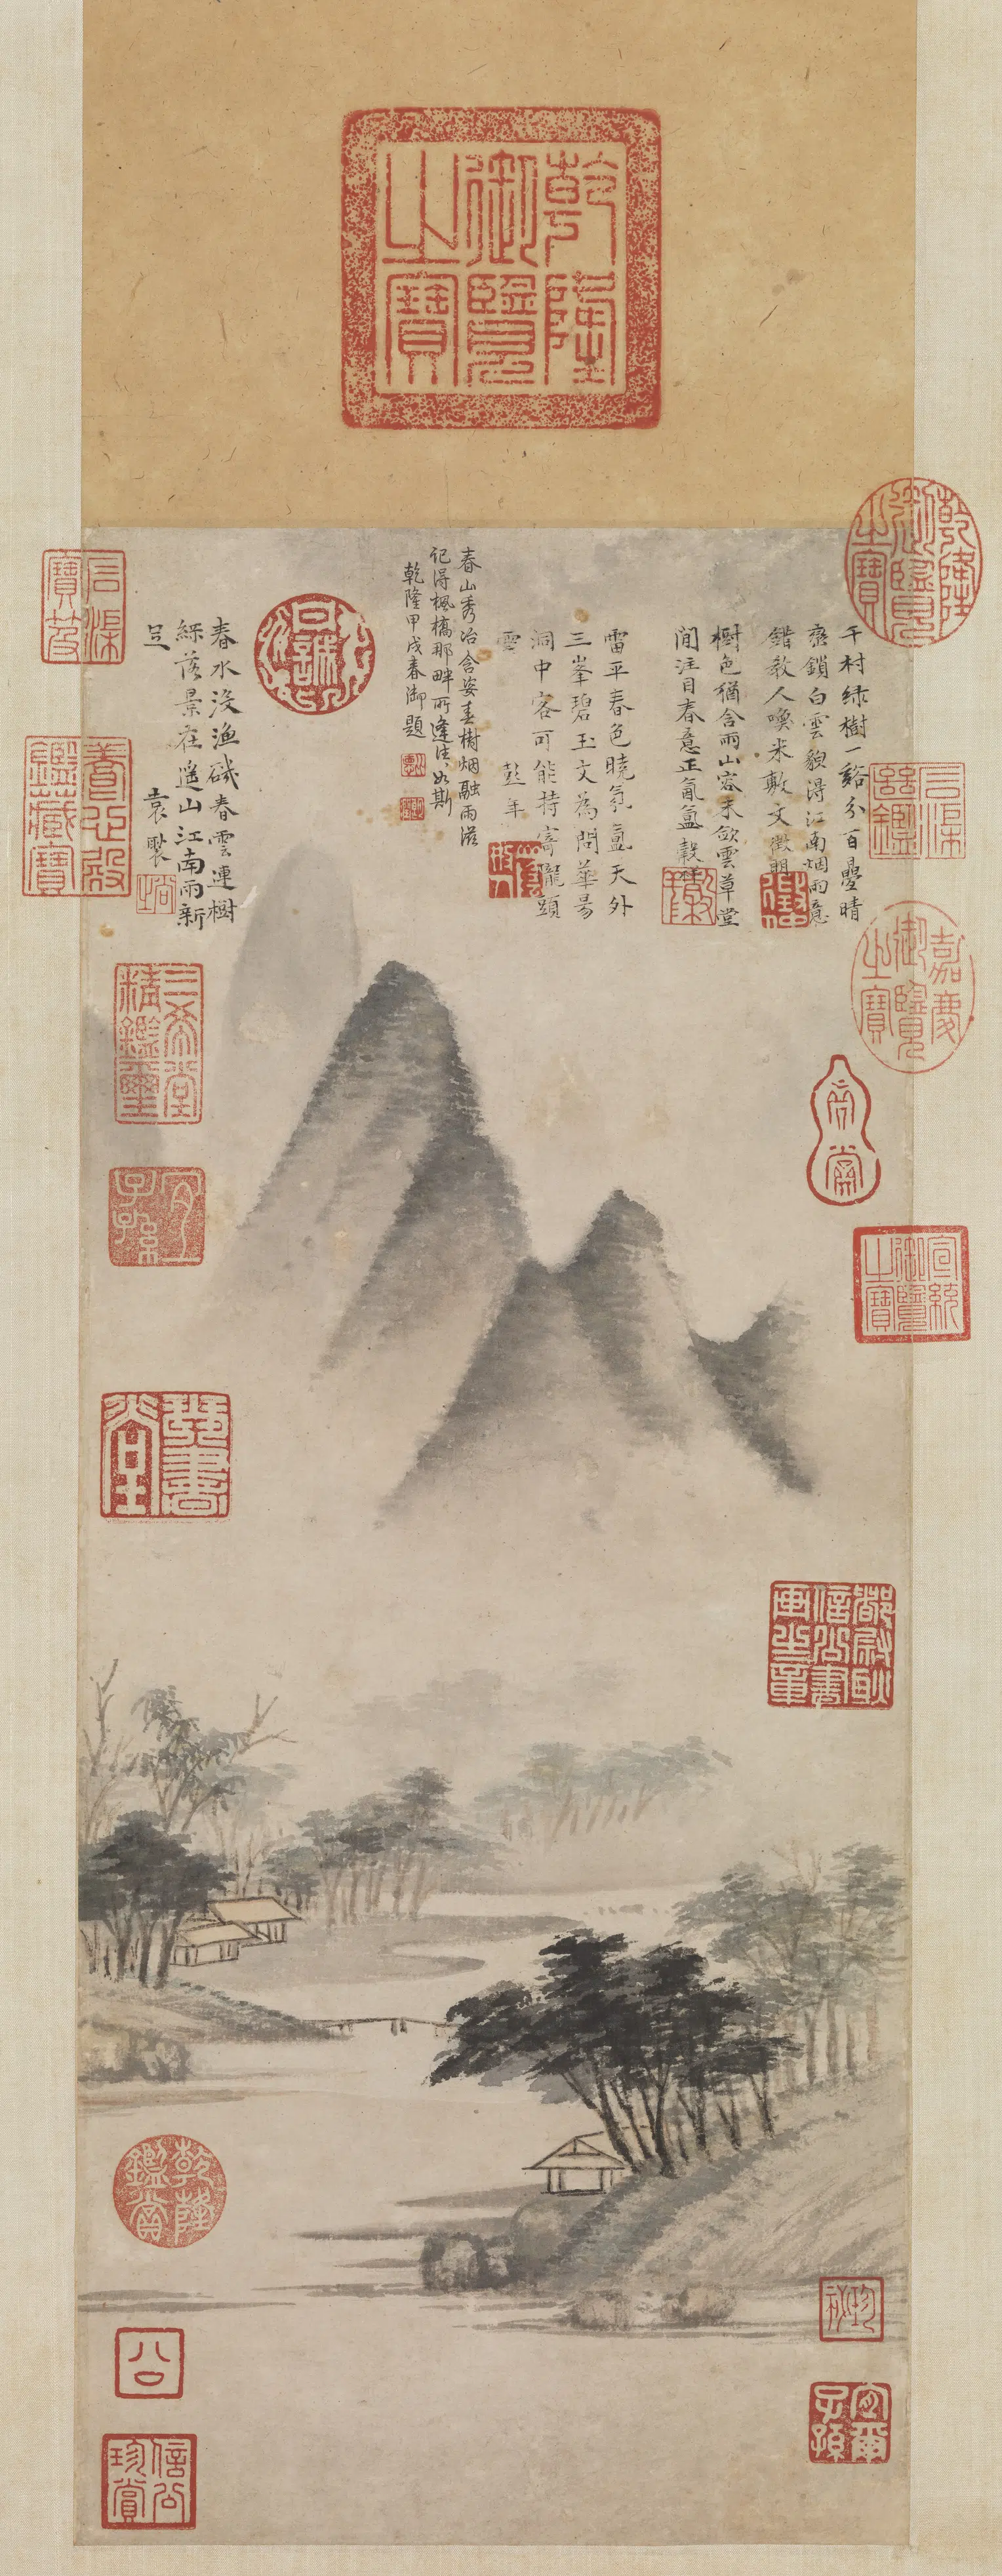 乾隆御覽之寶
乾隆御覽之寶
千村綠樹一谿分百疊晴
巒鎖白雲貌得江南烟雨意
錯教人喚米敷文 徵明
樹色猶含雨山容未斂雲草堂
閒注目春意正氤氳 穀祥
雷平春色曉氛氳天外
三峯碧玉文為問華陽
洞中客可能持寄隴頭
雲 彭年
春山秀冶含姿春樹烟融雨滋
記得楓橋那畔所逢往〻如斯
乾隆甲戌春御題
春水沒漁磯春雲連樹
綠落景在遙山江南雨新
足 袁褧
石渠寶笈
養心殿鑑藏寶
石渠繼鑑
嘉慶御覽之寶
宣統御覽之寶
三希堂精鑑璽
宜子孫
琴書堂
都尉耿信公書畫之章
乾隆鑑賞
公
信公珍賞
珍祕
宜爾子孫